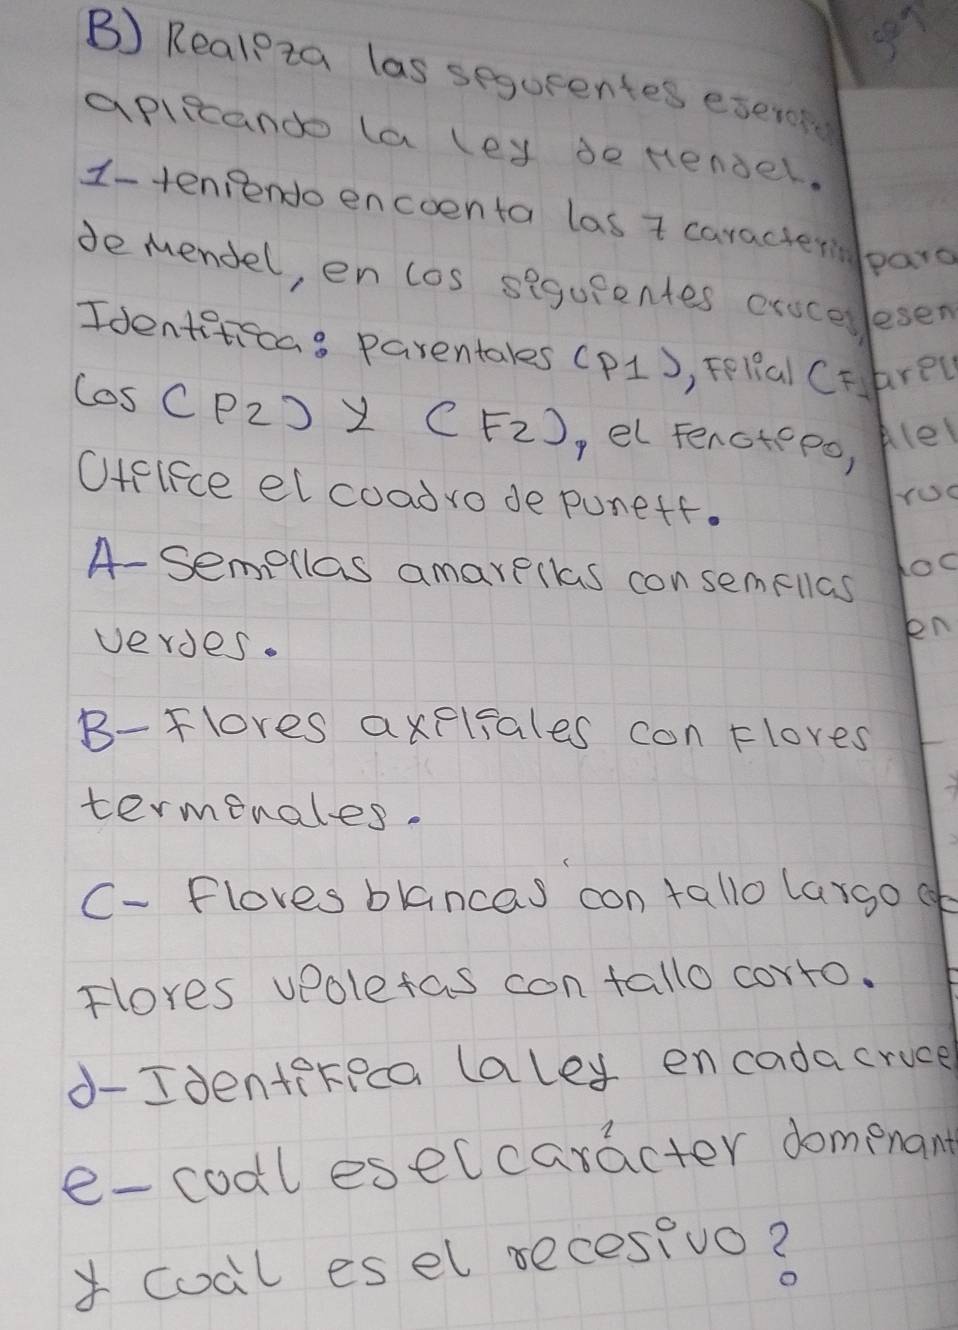 B) Realiza las siguientes
aplicando la ley de Mendel.
1- teniendo encuenta las 7 para
de Mendel, en los siguientes cruces, esen
Identifica: parentales (P1), Filial (F1
los (P2) y (F2), el Fenotipo,
Utilice el cuadro de punett.
A- Semillas amarillas con semillas
verdes.
en
B- Flores axiliales con Flores
terminales.
C- Flores blancas con tallo largo
Flores violetas con tallo corto.
d- Identifica la ley en cada cruce
e- cuál es el carácter dominant
y cuál es el recesivo?